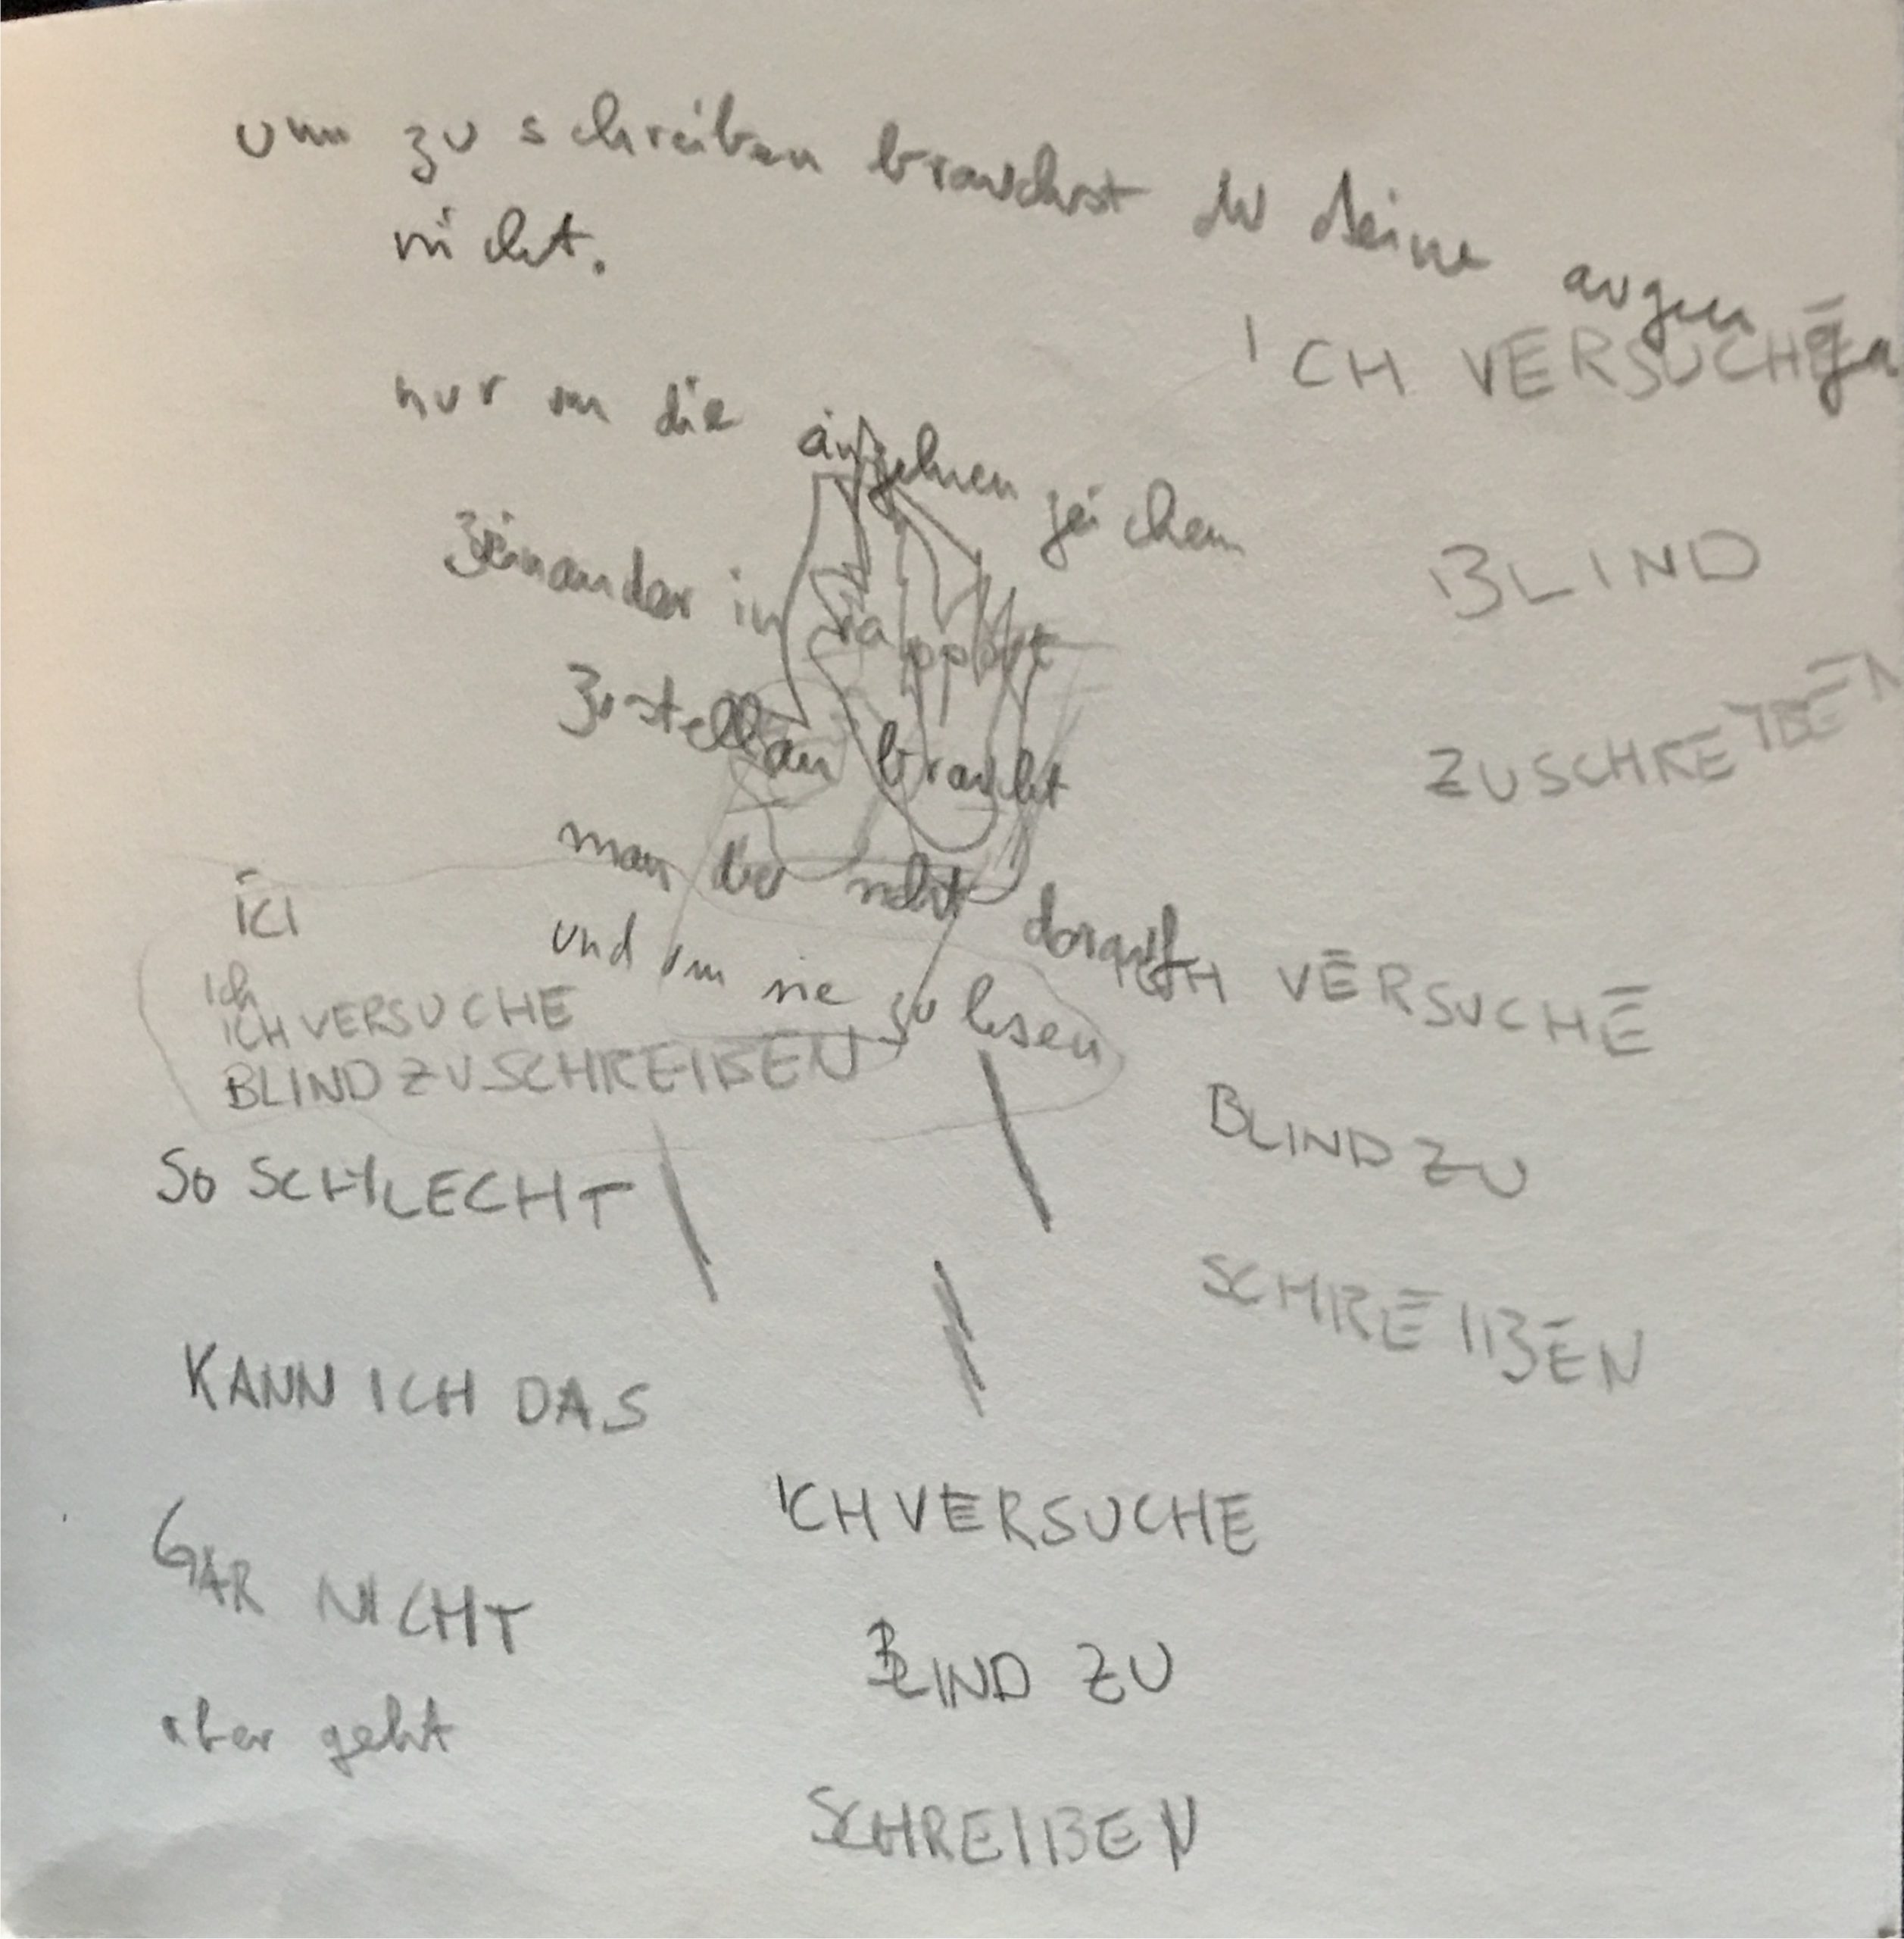 um zu schreiben brauchst du deine augen
nicht.
nur um die einzelnen zeichen
zueinander in rapport
zu stellen braucht
man die
und um sie zu lesen
ICH VERSUCHE
BLIND
ZU SCHREIBEN
ICI
ich
ICH VERSUCHE
BLIND ZU SCHREIBEN
SO SCHLECHT
KANN ICH DAS
GAR NICHT
aber geht
ICH VERSUCHE
BLIND ZU
SCHREIBEN
ICH VERSUCHE
BLIND ZU
SCHREIBEN